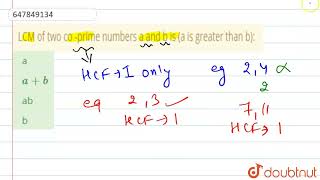 647849134
LCM of two co-prime numbers a and b is (a is greater than b):
a
a + b
ab
b
HCF → 1 only
eg 2,4 ∝
2
eg 2,3 ✓
HCF → 1
7,11
HCF → 1
doubtnut